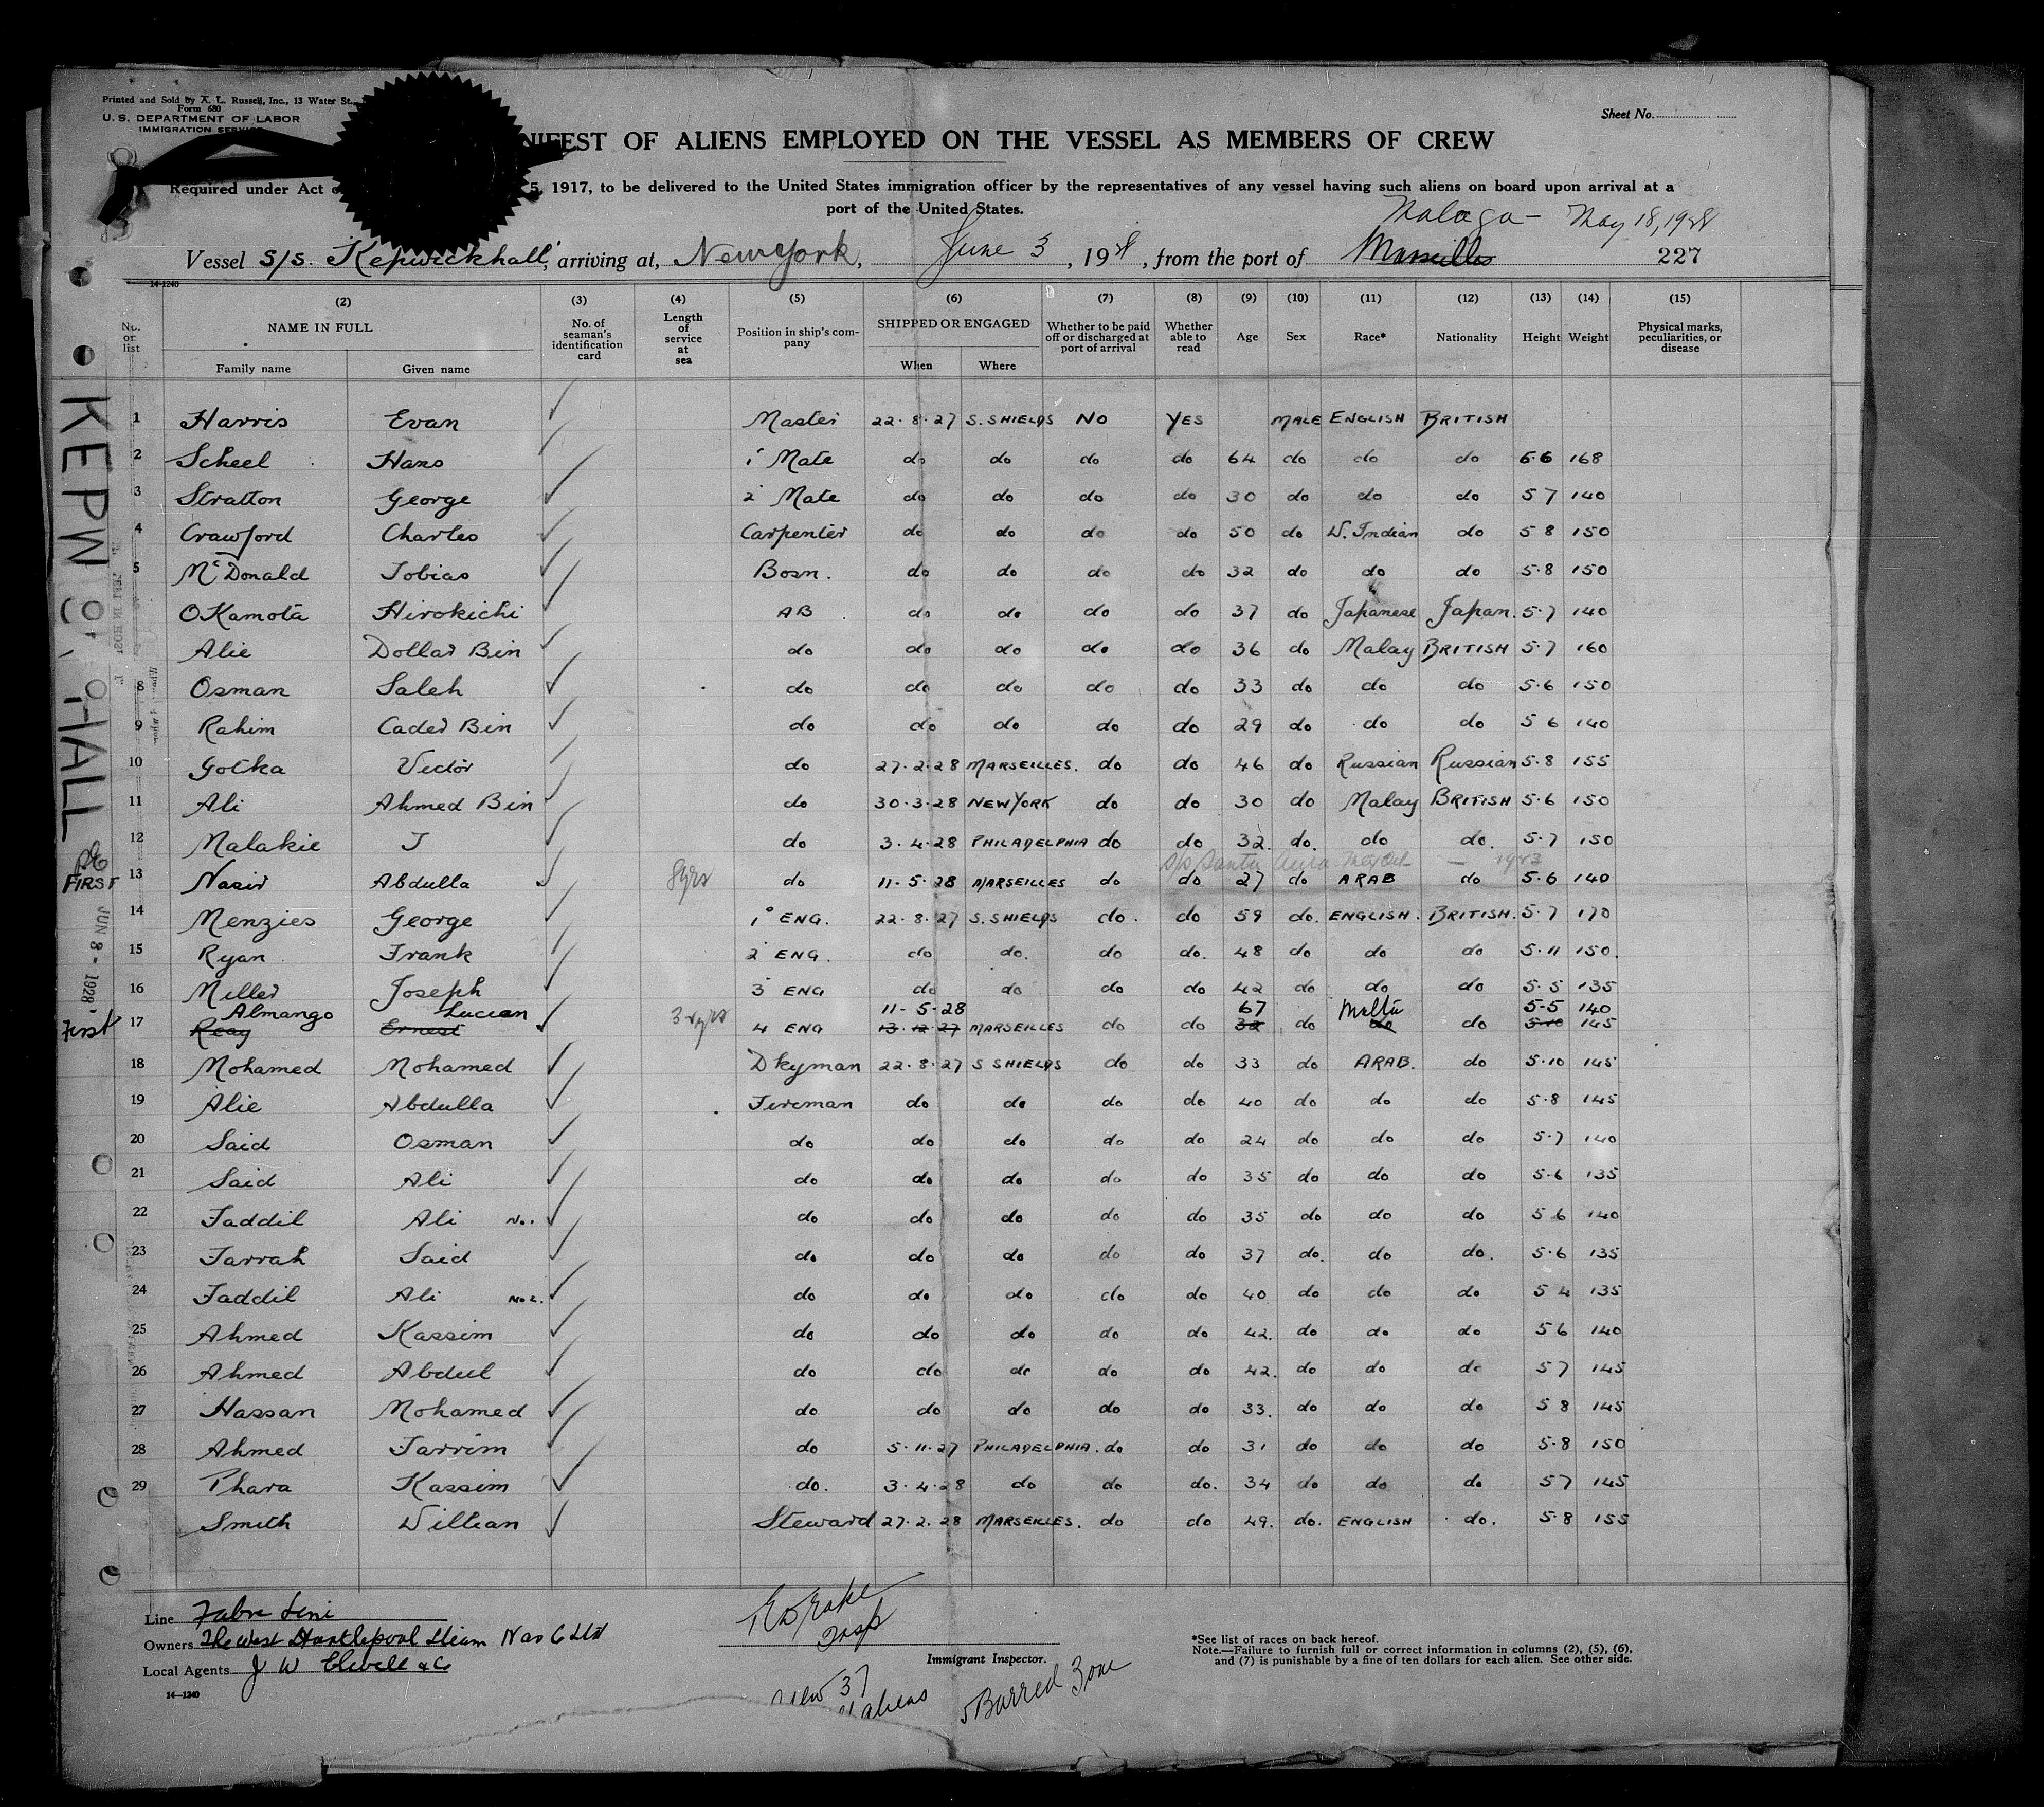 Printed and Sold by A. L. Russell, Inc., 13 Water St.,
Form 680
U. S. DEPARTMENT OF LABOR
IMMIGRATION SERVICE
Sheet No.
NIFEST OF ALIENS EMPLOYED ON THE VESSEL AS MEMBERS OF CREW
Required under Act 5, 1917, to be delivered to the United States immigration officer by the representatives of any vessel having such aliens on board upon arrival at a
port of the United States.
Malaga - May 18, 1928
Vessel S/S. "Kepwickhall", arriving at, New York, June 3, 198, from the port of Marseilles 227
14-1240
No. on list (2) NAME IN FULL Family name Given name (3) No. of seaman's identification card (4) Length of service at sea (5) Position in ship's company (6) SHIPPED OR ENGAGED When Where (7) Whether to be paid off or discharged at port of arrival (8) Whether able to read (9) Age (10) Sex (11) Race* (12) Nationality (13) Height (14) Weight (15) Physical marks, peculiarities, or disease
KEPWICKHALL
1 Harris Evan Master 22.8.27 S. SHIELDS NO YES MALE ENGLISH BRITISH
2 Scheel Hans 1 Mate do do do do 64 do do do 5.6 168
3 Stratton George 2 Mate do do do do 30 do do do 5 7 140
4 Crawford Charles Carpenter do do do do 50 do W. Indian do 5 8 150
5 McDonald Tobias Bosn. do do do do 32 do do do 5.8 150
OKamota Hirokichi AB do do do do 37 do Japanese Japan. 5.7 140
Alie Dollar Bin do do do do do 36 do Malay BRITISH 5.7 160
8 Osman Saleh do do do do do 33 do do do 5.6 150
9 Rahim Cader Bin do do do do do 29 do do do 5 6 140
10 Gotka Victor do 27.2.28 MARSEILLES. do do 46 do Russian Russian 5.8 155
11 Ali Ahmed Bin do 30.3.28 NEW YORK do do 30 do Malay BRITISH 5.6 150
12 Malakie J do 3.4.28 PHILADELPHIA do do 32. do. do do. 5.7 150
FIRST 13 Nasir Abdulla 8yrs do 11-5.28 MARSEILLES do do 27 do ARAB do 5.6 140
JUN 8 - 1928
14 Menzies George 1° ENG. 22.8.27 S. SHIELDS do. do 59 do. ENGLISH. BRITISH. 5.7 170
15 Ryan Frank 2 ENG. do do. do do. 48 do do do 5.11 150.
16 Miller Joseph 3 ENG do do do do 42 do do do 5.5 135
Almango Lucien 11-5-28 67 Malta 5-5 140
First 17 Reay Ernest 4 ENG 13.12.27 MARSEILLES do do 32 do do do 5.10 145
18 Mohamed Mohamed Dkyman 22.8.27 S SHIELDS do do 33 do ARAB. do 5.10 145
19 Alie Abdulla Fireman do do do do 40 do do do 5.8 145
20 Said Osman do do do do do 24 do do do 5.7 140
21 Said Ali do do do do do 35 do do do 5.6 135
22 Faddil Ali No. do do do do do 35 do do do 5 6 140
23 Farrah Said do do do do do 37 do. do do. 5.6 135
24 Faddil Ali No 2. do do do do do 40 do do do 5 4 135
25 Ahmed Kassim do do do do do 42. do do do 5 6 140
26 Ahmed Abdul do do do do do 42. do do do 5 7 145
27 Hassan Mohamed do do do do do 33. do do do 5 8 145
28 Ahmed Farrim do 5.11.27 PHILADELPHIA. do do 31 do do do 5.8 150
29 Phara Kassim do. 3.4.28 do do do. 34 do do do 5 7 145
Smith Willian Steward 27.2.28 MARSEILLES. do do 49. do. ENGLISH do. 5.8 155
Line Fabre Line
Owners The West Hartlepool Steam Nav C Ltd
Local Agents J W Elwell & Co
14-1240
Drake
Insp
Immigrant Inspector.
37
aliens
5 Barred Zone
*See list of races on back hereof.
Note.—Failure to furnish full or correct information in columns (2), (5), (6),
and (7) is punishable by a fine of ten dollars for each alien. See other side.